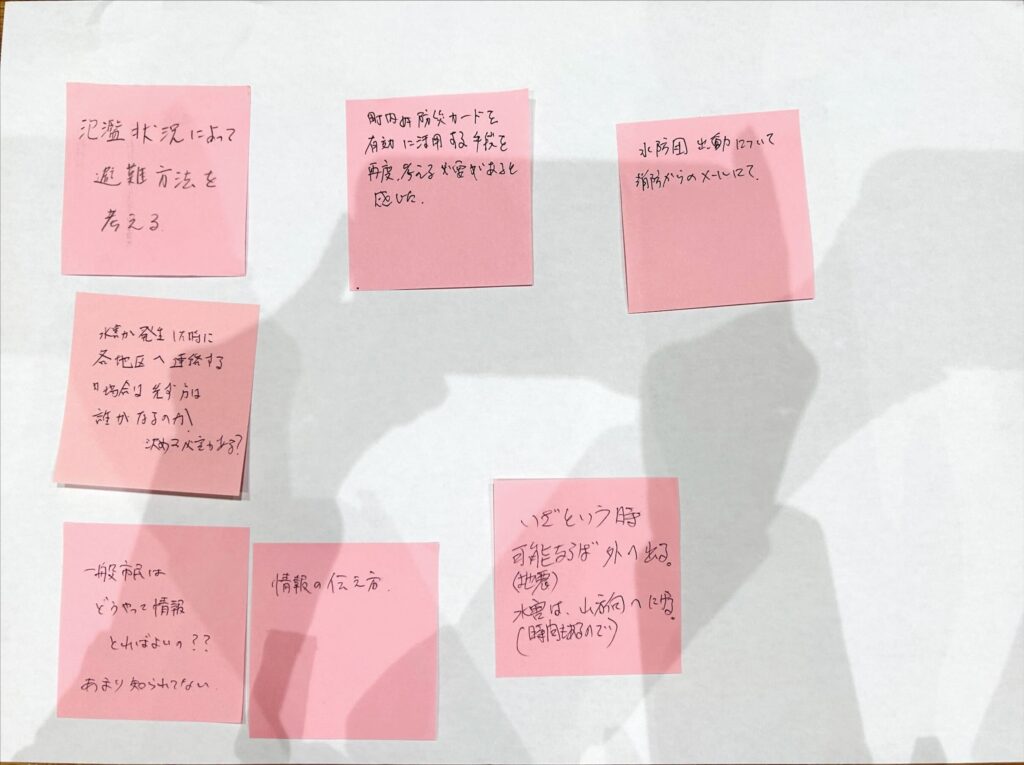 氾濫状況によって
避難方法を
考える
町内毎防災カードを
有効に活用する手段を
再度、考える必要があると
感じた.
水防団出動について
消防からのメールにて.
水害が発生した時に
各地区へ連絡する
場合は
誰がなるのか
決める必要がある?
一般市民は
どうやって情報
とればよいの??
あまり知られてない
情報の伝え方.
いざという時
可能ならば外へ出る。
(地震)
水害は、山方向へにげる。
(時間もあるので)